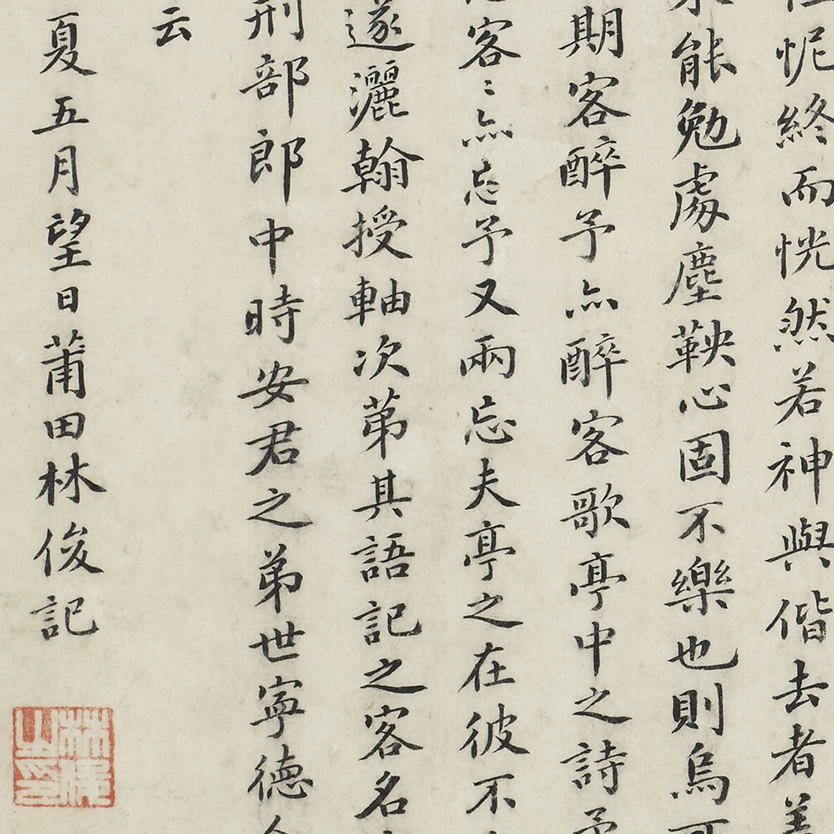 怩終而恍然若神與偕去者
能勉處塵鞅心固不樂也則烏
期客醉予亦醉客歌亭中之詩予
客〻亦忘予又兩忘夫亭之在彼不
遂灑翰授軸次第其語記之客名
刑部郎中時安君之弟世寧德
云
夏五月望日莆田林俊記
林俊之印